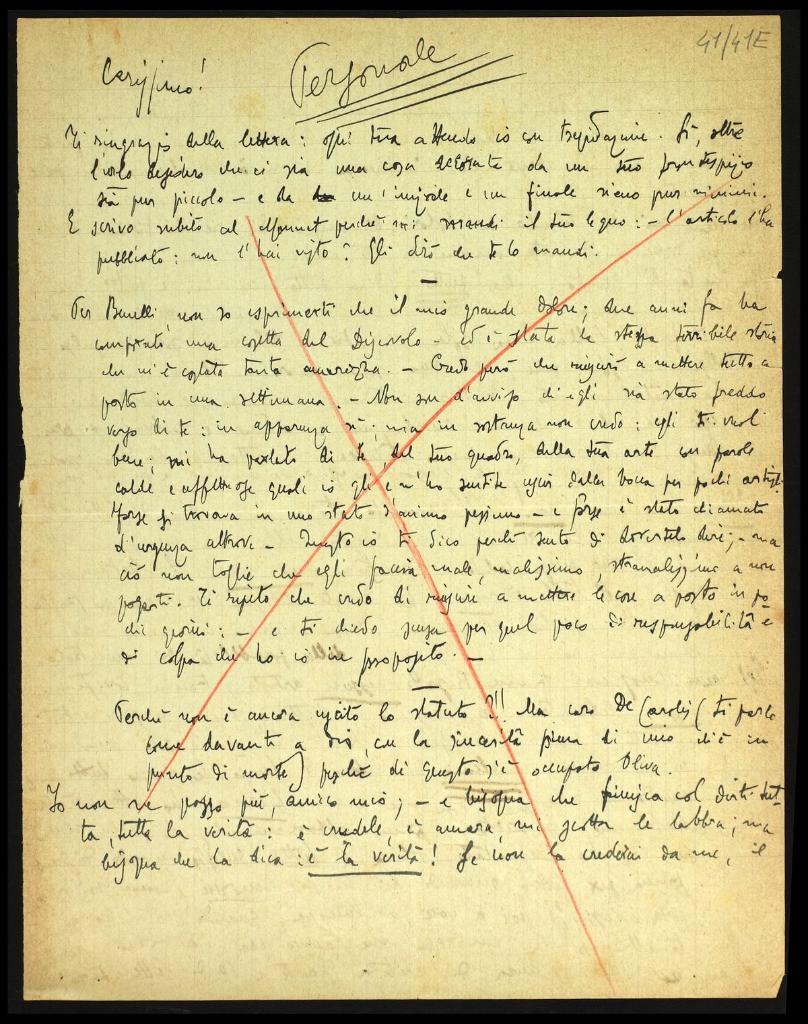 41/41E
Personale
Carissimo!
Ti ringrazio della lettera: ogni tua attendo io con trepidazione. Sì, oltre
l'orlo desidero che ci sia una cosa decorata da un tuo frontespizio
sia pur piccolo - e da un' iniziale e un finale sieno pur minimi.
E scrivo subito al Mounet perchè mi mandi il tuo legno: - l'articolo l'ha
pubblicato: non l'hai visto? Gli dirò che te lo mandi.
Per Benelli non so esprimerti che il mio grande dolore; due anni fa ha
comprato una cosetta del Discovolo - ed è stata la stessa terribile storia
che m'è costata tanta amarezza. - Credo però che riuscirò a mettere tutto a
posto in una settimana. - Non son d'avviso di egli sia stato freddo
verso di te: in apparenza sì; ma in sostanza non credo: egli ti vuol
bene; mi ha parlato di te, del tuo quadro, della tua arte con parole
calde e affettuose quali io gli e n'ho sentite uscir dalla bocca per pochi artisti.
Forse si trovava in uno stato d'animo pessimo - e forse è stato chiamato
d'urgenza altrove - Questo io ti dico perchè sento di dovertelo dire; - ma
ciò non toglie che egli faccia male, malissimo, stramalissimo a non
pagarti. Ti ripeto che credo di riuscire a mettere le cose a posto in po
chi giorni: - e ti chiedo scusa per quel poco di responsabilità e
di colpa che ho io in proposito. -
Perchè non è ancora uscito lo statuto?!! Ma caro De Carolis (ti parlo
come davanti a Dio, con la sincerità piena di uno ch'è in
punto di morte) perchè di questo s'è occupato Oliva.
Io non ne posso più, amico mio; - e bisogna che finisca col dirti tut-
ta, tutta la verità: è crudele, è amara, mi scotta le labbra; ma
bisogna che la dica: è la verità! Se non la crederai da me, il